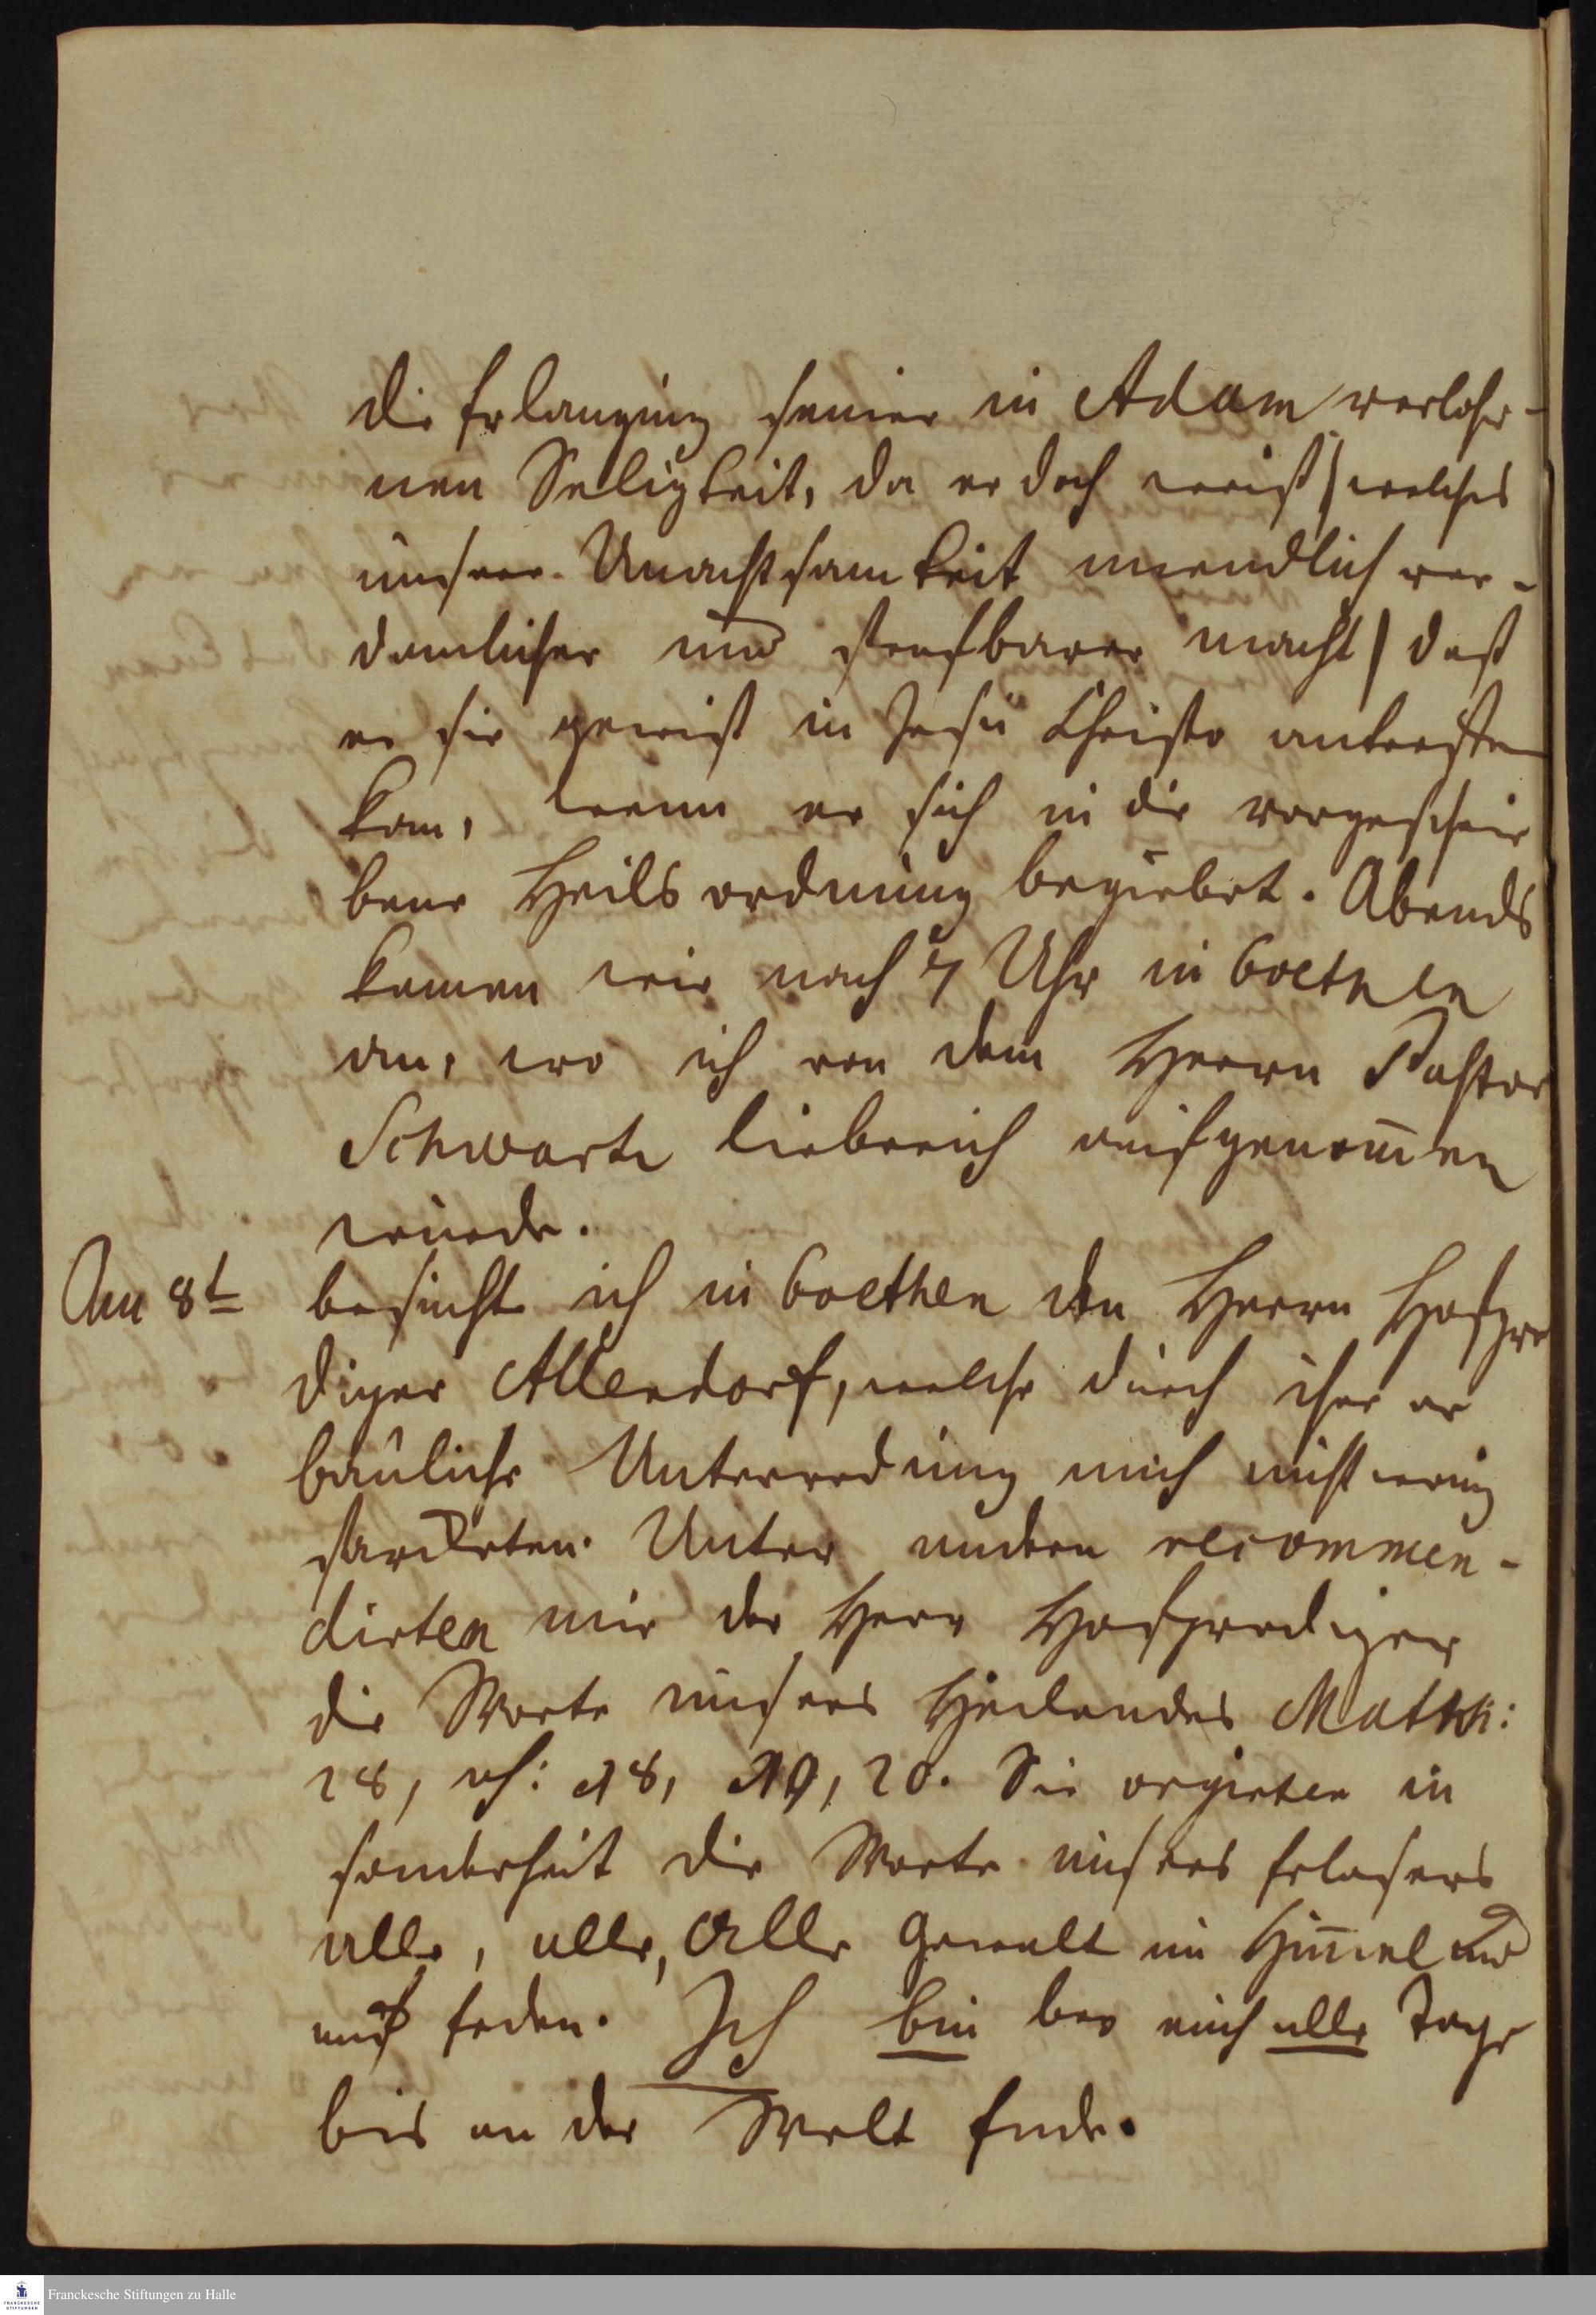 die Erlangung seiner in Adam verlohr-
nen Seligkeit, da er doch weiß (welches
unsere Unachtsamkeit unendlich ver-
damlicher und strafbarer macht) daß
er sie gewiß in Jesu Christo antreffen
kan, wenn er sich in die vorgeschrie
bene Heilsordnung begiebet. Abends
kamen wir nach 7 Uhr in Coethen
an, wo ich von dem Herrn Pastor
Schwartz liebreich aufgenommen
wurde.
Am 8t besuchte ich in Coethen den Herrn Hofpre
diger Allendorf, welche durch ihre er
bauliche Unterredung mich nicht wenig
stärckten. Unter andern recommen-
dirten mir der Herr Hofprediger
die Worte unsers Heilandes Matth:
28, vs: 18, 19, 20. Sie urgirten in
sonderheit die Worte unsers Erlösers
alle, alle, Alle Gewalt im Himmel und
auf Erden. Ich bin bey euch alle Tage
bis an der Welt Ende.
Franckesche Stiftungen zu Halle
FRANCKESCHE
STIFTUNGEN